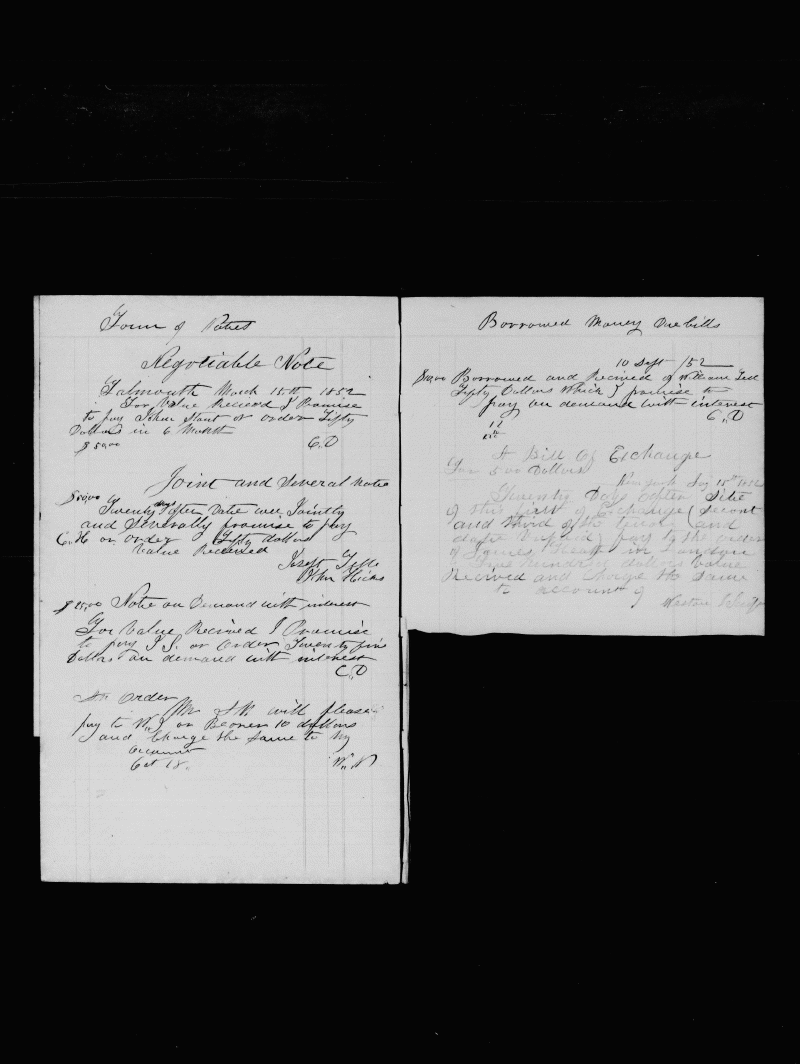 Form of Notes
Negotiable Note
Falmouth March 15th 1852
For Value Received I Promise
to pay John Stout or order Fifty
Dollars in 6 Months
$50,00 C.D
Joint and Several Note
$50,00
Twenty days after Date we Jointly
and Severally promise to pay
C.H or order Fifty dollars
Value Received
Joseph
John Hicks
$25,00 Note on Demand with interest
For Value Received I Promise
to pay J S. or Order Twenty five
Dollars on demand with interest
C.D
An Order
Mr will please
pay to or Bearer 10 dollars
and Charge the same to my
account
Oct 18.
Borrowed Money Due bills
10 Sept /52
$50,00 Borrowed and Received of William
Fifty Dollars Which I promise to
pay on demand with interest
C.D
A Bill Of Exchange
For 500 Dollars
New york 15th
Twenty Days after Site
of this first of Exchange (second
and third of the tenor and
date unpaid) pay to the order
of in London
five hundred dollars Value
Received and Charge the same
to account of